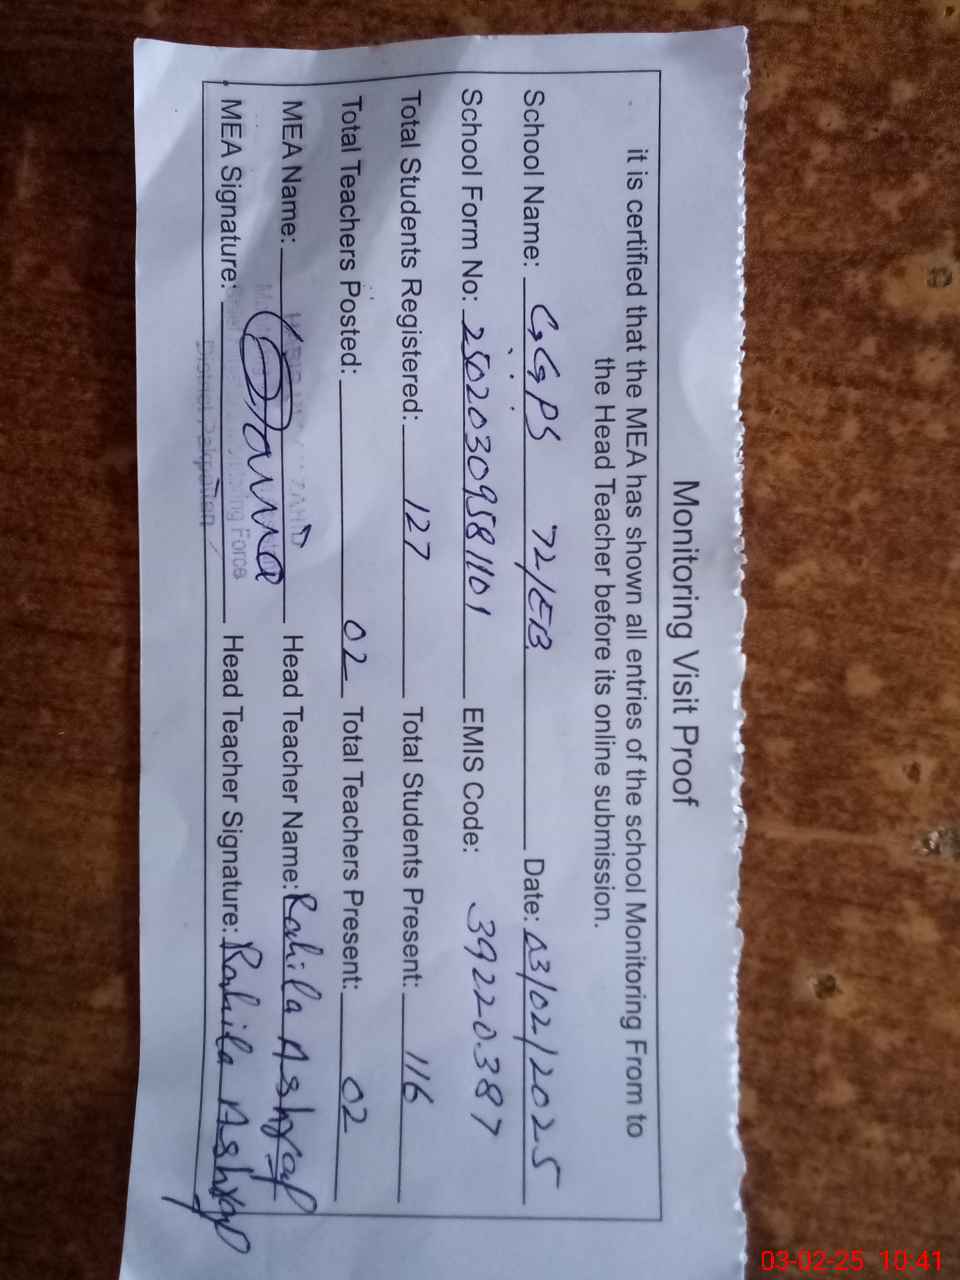 Monitoring Visit Proof
it is certified that the MEA has shown all entries of the school Monitoring From to
the Head Teacher before its online submission.
School Name: GGPS 72/EB Date: 03/02/2025
School Form No: 25020309581101 EMIS Code: 39220387
Total Students Registered: 127 Total Students Present: 116
Total Teachers Posted: 02 Total Teachers Present: 02
MEA Name: ZAHID Head Teacher Name: Rahila Ashraf
MEA Signature: Head Teacher Signature: Rahila Ashraf
Force
District, Pakpattan
03-02-25 10:41